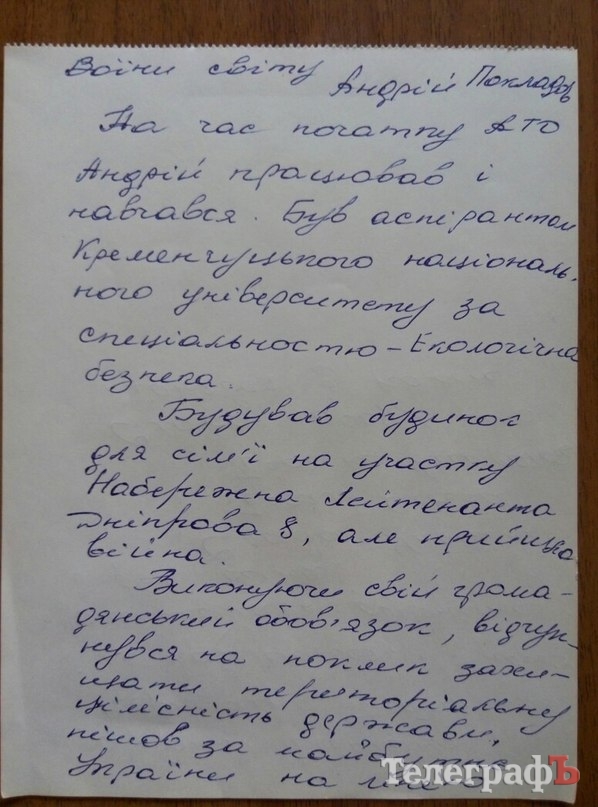 Воїни світу Андрій Покладов
На час початку АТО
Андрій працював і
навчався. Був аспірантом
Кременчуцького національ-
ного університету за
спеціальностю - Екологічна
безпека.
Будував будинок
для сім'ї на участку
Набережна Лейтенанта
Дніпрова 8, але прийшла
війна.
Виконуючи свій грома-
дянський обов'язок, відгук-
нувся на поклик захи-
щати територіальну
цілісність держави,
пішов за майбутнє
України на
ТелеграфЪ